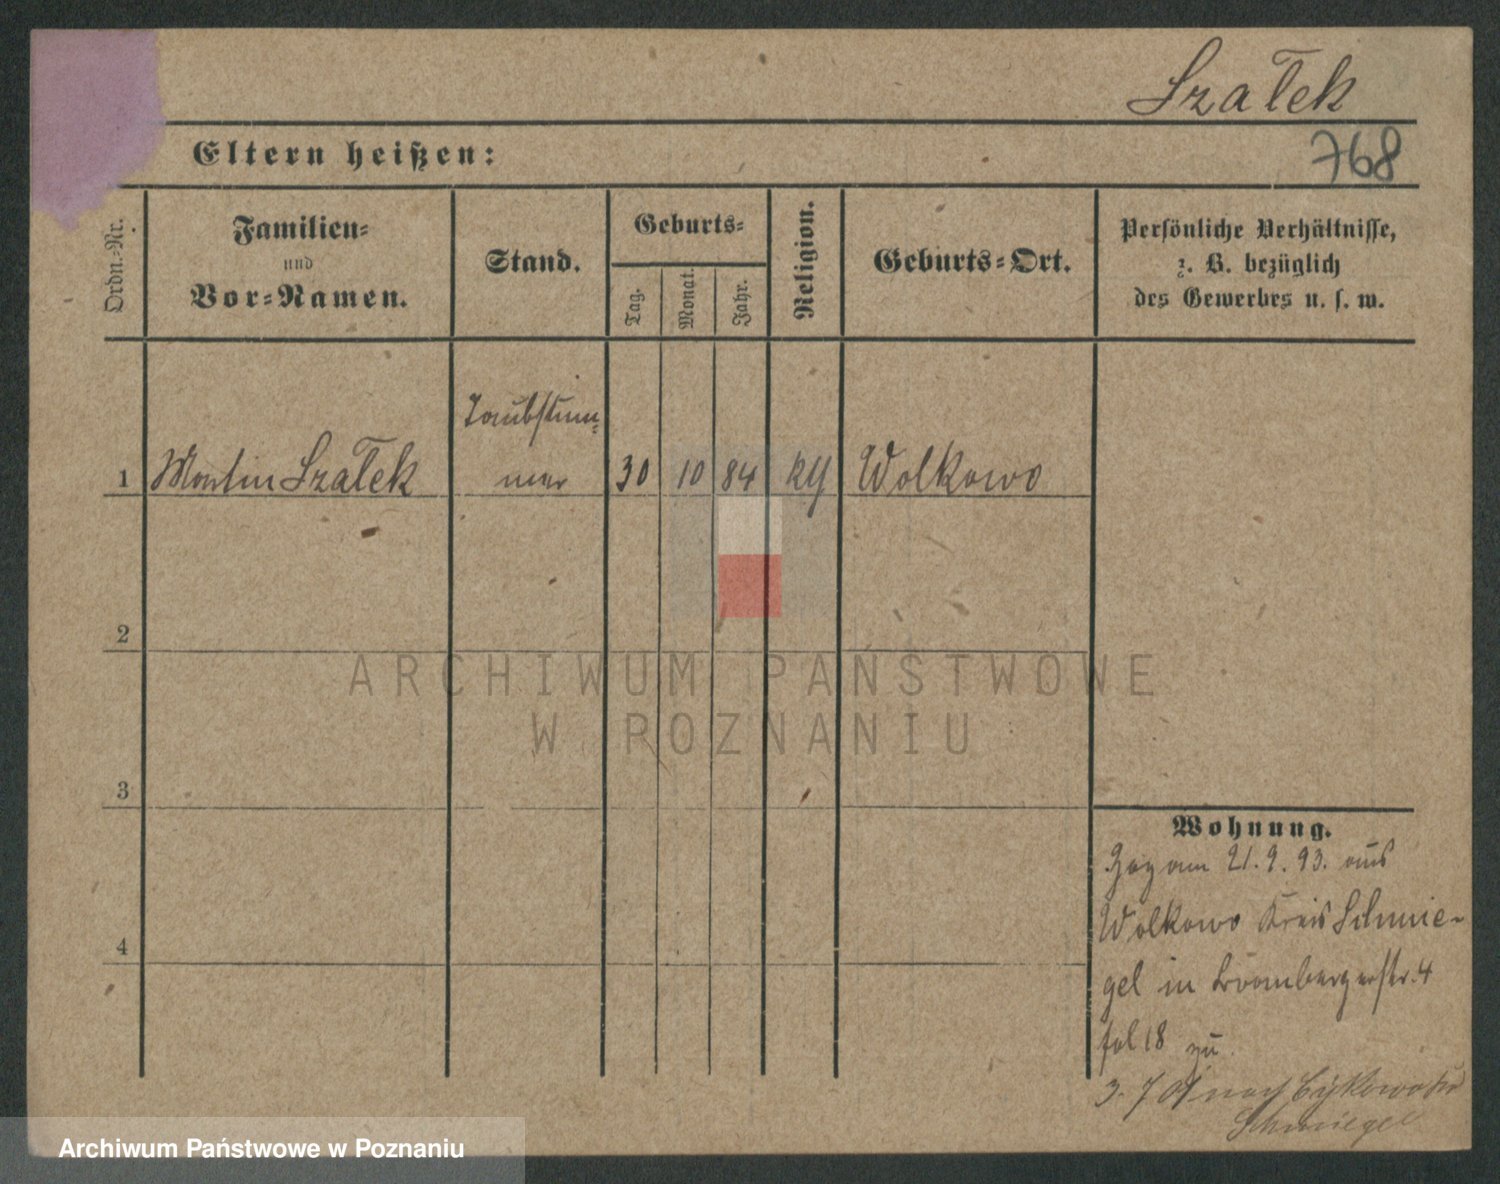 Szałek
Eltern heißen:
768
Ordn.-Nr.
Familien-
und
Vor-Namen.
Stand.
Geburts-
Tag.
Monat.
Jahr.
Religion.
Geburts-Ort.
Persönliche Verhältnisse,
z. B. bezüglich
des Gewerbes u. s. w.
Taubstum-
1 Martin Szałek mer 30 10 84 Wolkowo
2
ARCHIWUM PAŃSTWOWE
W POZNANIU
3
Wohnung.
Zog am 21. 9. 93. aus
Wolkowo Kreis Schmie-
4
gel in Brombergerstr. 4
fol 18 zu.
3. 7 nach
Schmiegel
Archiwum Państwowe w Poznaniu